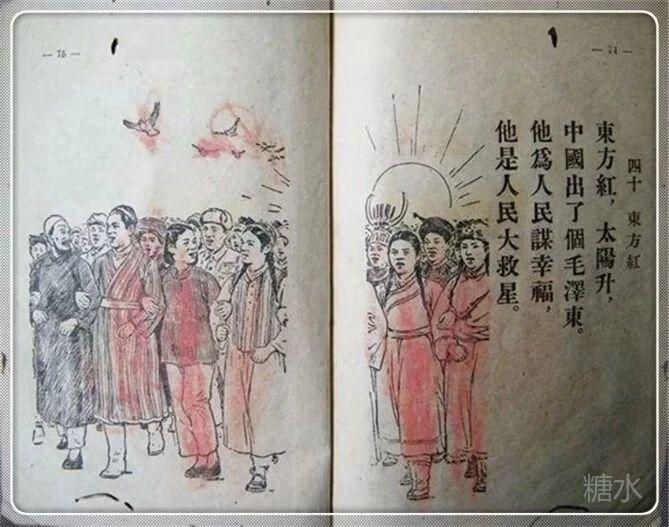 — 74 —
四十 東方紅
東方紅，太陽升，
中國出了個毛澤東。
他爲人民謀幸福，
他是人民大救星。
— 75 —
糖水